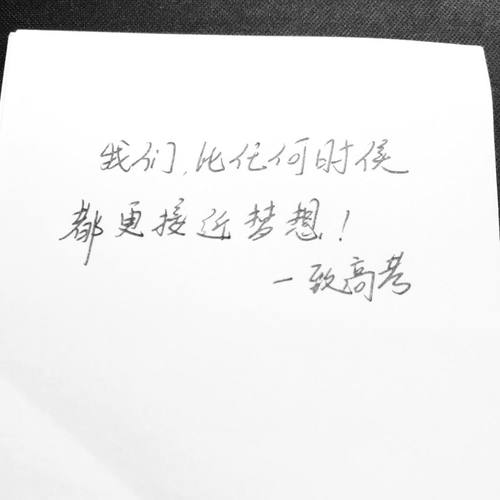 我们，比任何时侯
都更接近梦想！
一致高考